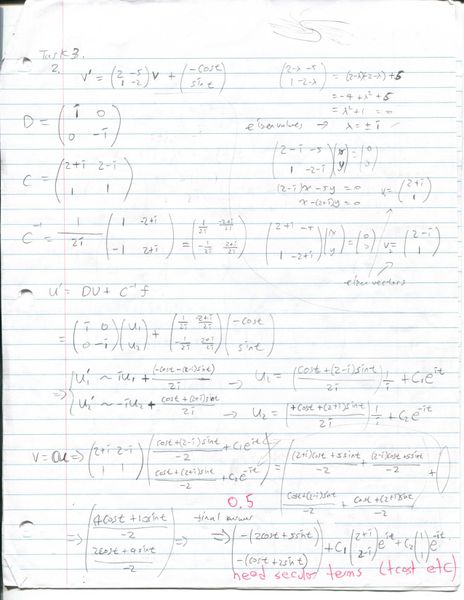 Task 3.
2. v' = (2 -5 / 1 -2) v + (-cost / sint)
(2-λ -5 / 1 -2-λ) = (2-λ)(-2-λ) + 5
= -4 + λ² + 5
= λ² + 1 = 0
eigenvalues → λ = ± i
D = (i 0 / 0 -i)
(2-i -5 / 1 -2-i)(x / y) = (0 / 0)
(2-i)x - 5y = 0
x - (2+i)y = 0
v = (2+i / 1)
C = (2+i 2-i / 1 1)
C⁻¹ = 1/2i (1 -2+i / -1 2+i) = (1/2i -2+i/2i / -1/2i 2+i/2i)
(2+i -5 / 1 -2+i)(x / y) = (0 / 0) v₂ = (2-i / 1)
eigenvectors
u' = DU + C⁻¹f
= (i 0 / 0 -i)(u₁ / u₂) + (1/2i -2+i/2i / -1/2i 2+i/2i)(-cost / sint)
⇒ { u₁' ~ iu₁ + (-cost-(2-i)sint)/2i → U₁ = ((cost+(2-i)sint)/2i) 1/i + C₁e^it
u₂' ~ -iu₂ + (cost+(2+i)sint)/2i → U₂ = (+cost+(2+i)sint)/2i) 1/i + C₂e^-it
V = CU ⇒ (2+i 2-i / 1 1)((cost+(2-i)sint)/-2 + C₁e^it / (cost+(2+i)sint)/-2 + C₂e^-it) = (((2+i)cost+5sint)/-2 + ((2-i)cost+5sint)/-2 / (cost+(2-i)sint)/-2 + (cost+(2+i)sint)/-2) +
0.5
⇒ ((4cost+10sint)/-2 / (2cost+4sint)/-2) ⇒ final answer ⇒ (-(2cost+5sint) / -(cost+2sint)) + C₁(2+i / 2-i)e^it + C₂(1 / 1)e^-it
need secular terms (tcost etc)